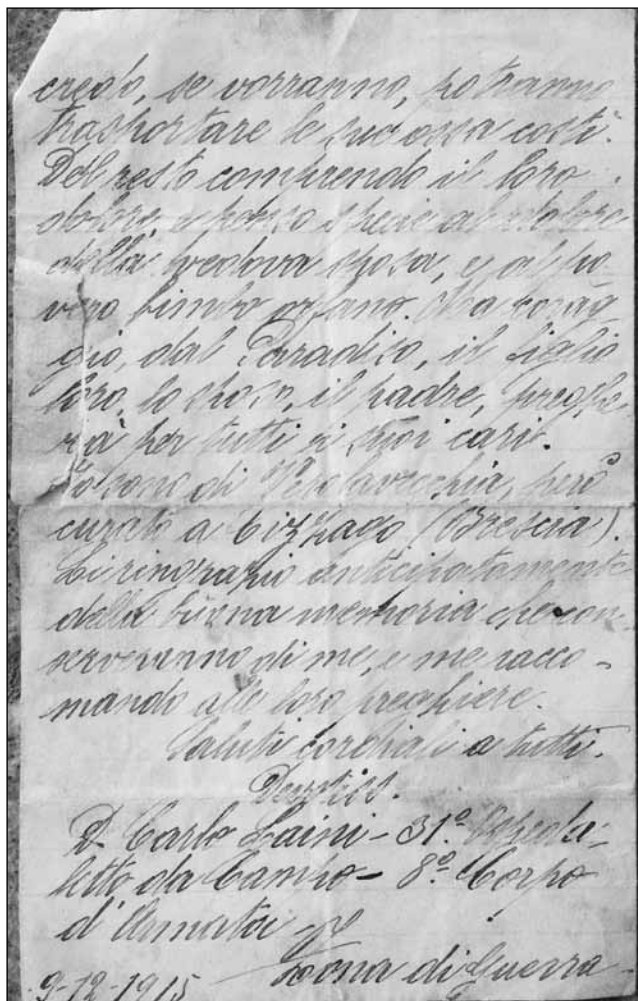 credo, se vorranno, potranno
trasportare le sue ossa costì.
Del resto comprendo il loro
dolore, e penso specie al dolore
della vedova sposa, e al po
vero bimbo orfano. Ma corag
gio, dal Paradiso, il figlio
loro, lo sposo, il padre, preghe
rà per tutti i suoi cari.
Io sono di Verolavecchia, però
curato a Cizzago (Brescia).
Li ringrazio anticipatamente
della buona memoria che con
serveranno di me, e me racco-
mando alle loro preghiere.
Saluti cordiali a tutti.
D. Carlo Laini - 31º Ospeda-
letto da Campo - 8º Corpo
d'Armata
Zona di Guerra
9-12-1915